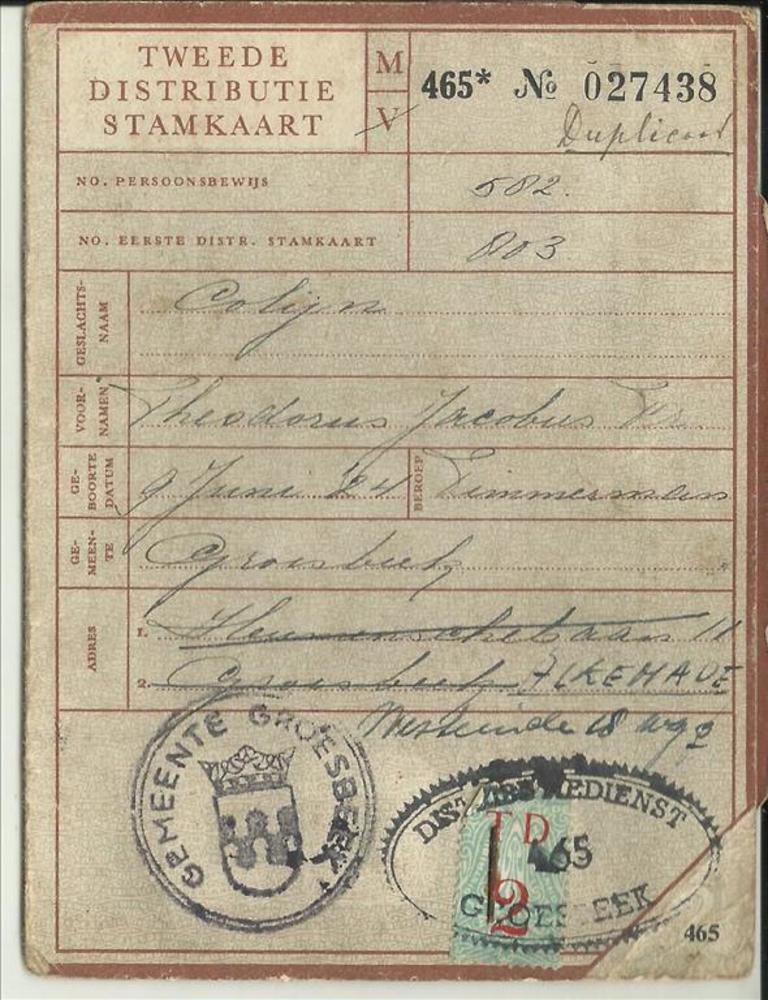 TWEEDE
DISTRIBUTIE
STAMKAART
M
V
465* № 027438
Duplicaat
NO. PERSOONSBEWIJS
582.
NO. EERSTE DISTR. STAMKAART
803
GESLACHTS-
NAAM
Colijn
VOOR-
NAMEN
Theodorus Jacobus Fr.
GE-
BOORTE
DATUM
9 Juni '24
BEROEP
Timmerman
GE-
MEEN-
TE
Groesbeek
ADRES
1. 11
2. Groesbeek ALKEMADE
Westeinde 18
GEMEENTE GROESBEEK
DISTRIBUTIEDIENST
TD
465
GROESBEEK
2
465